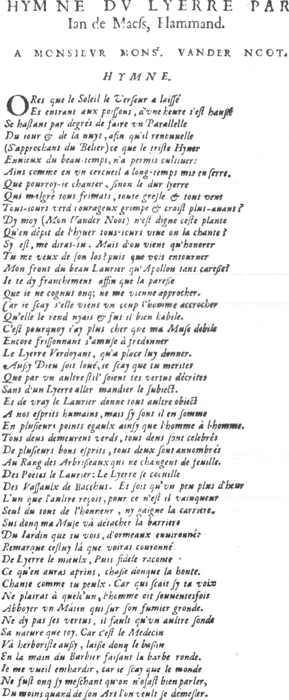 HYMNE DV LYERRE PAR
Ian de Maess, Hammand.
A MONSIEVR MONSr. VANDER NOOT.
HYMNE.
ORes que le Soleil le Verseur a laissé
Et entrant aux poissons, d'vne heure s'est haussé
Se hastant par degrés de faire vn Parallelle
Du iour & de la nuyt, afin qu'il renouuelle
(S'approchant du Belier) ce que le triste Hyuer
Ennieux du beau temps, n'a permis cultiuer:
Ains comme en vn cercueil a long-temps mis en serre.
Que pourroy-ie chanter, sinon le dur lyerre
Qui malgré tous frimats, toute gresle & tout vent
Tous-iours verd courageux grimpe & croist plus-auant?
Dy moy (Mon Vander Noot) n'est digne ceste plante
Qu'en dépit de l'hyuer tous-iours viue on la chante?
Sy est, me diras-tu. Mais d'ou vient qu'honorer
Tu me veux de son los? puis que vois entourner
Mon front du beau Laurier qu'Apollon tant caresse?
Ie te dy franchement affin que la paresse
Que ie ne cognus onq; ne me vienne approcher.
Car ie sçay s'elle vient vn coup l'homme accrocher
Qu'elle le rend nyais & fut il bien habile.
C'est pourquoy i'ay plus cher que ma Muse debile
Encore frissonnant s'amuse à fredonner
Le Lyerre Verdoyant, qu'a place luy donner.
Aussy Dieu soit loué, ie sçay que tu merites
Que par vn aultre stil' soient tes vertus décrites
Sans d'un Lyerre aller mandier le subiect.
Et de vray le Laurier donne tout aultre obiect
A nos esprits humains, mais sy sont il en somme
En plusieurs points egaulx ainsy que l'homme à l'homme.
Tous deus demeurent verds, tous deus sont celebrés
De plusieurs bons esprits, tous deux sont annombrés
Au Rang des Arbrisseaux qui ne changent de feuille.
Des Poetes le Laurier: Le Lyerre se coeuille
Des Vassaulx de Bacchus. Et sois qu'vn peu plus d'heur
L'un que l'aultre reçois, pour ce n'est il vainqueur
Seul du tout de l'honneur, ny gaigne la carriere.
Sus donq ma Muse và détacher la barriere
Du Iardin que tu vois, d'ormeaux enuironné:
Remarque cestuy là que voiras couronné
De Lyerre le mieulx, Puis fidele raconte
Ce qu'en auras aprins, chasse donque la honte.
Chante comme tu peulx. Car qui sçait sy ta voix
Ne plairas à quelc'un, l'homme oit souuentesfois
Abboyer vn Matin qui sur son fumier gronde.
Ne dy pas ses vertus, il faults qu'vn aultre sonde
Sa nature que toy. Car c'est le Medecin
Và herboriste aussy, laisse donq le bassin
En la main du Barbier faisant la barbe ronde.
Ie me vueil embardir, car ie sçay que le monde
Ne fust onq sy meschant qu'on n'osast bien parler,
Du moins quand de son Art l'on veult se démesler.